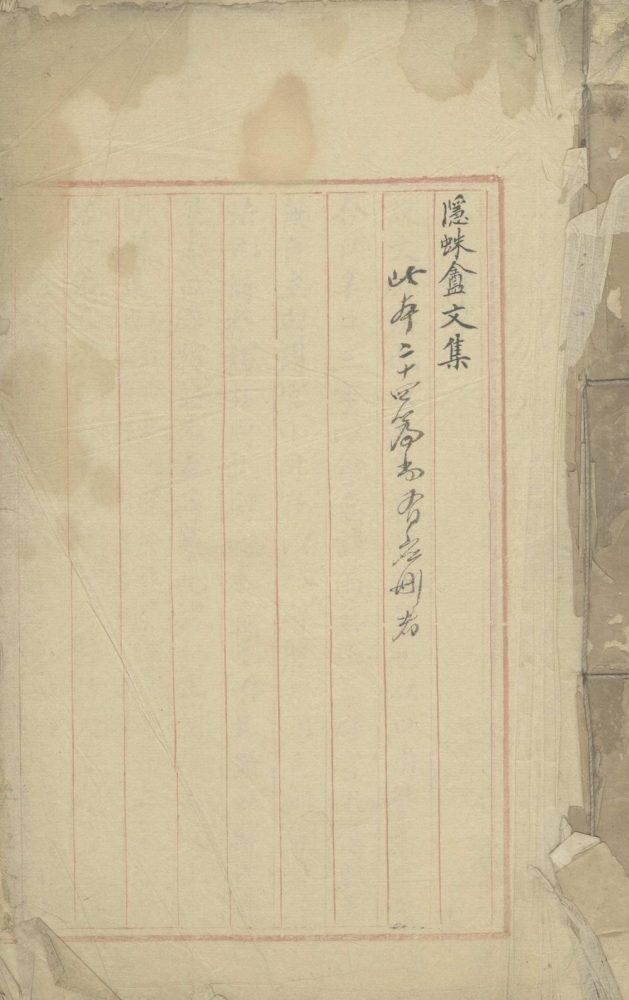 隱蛛盦文集
此本二十四篇尚有應刪者